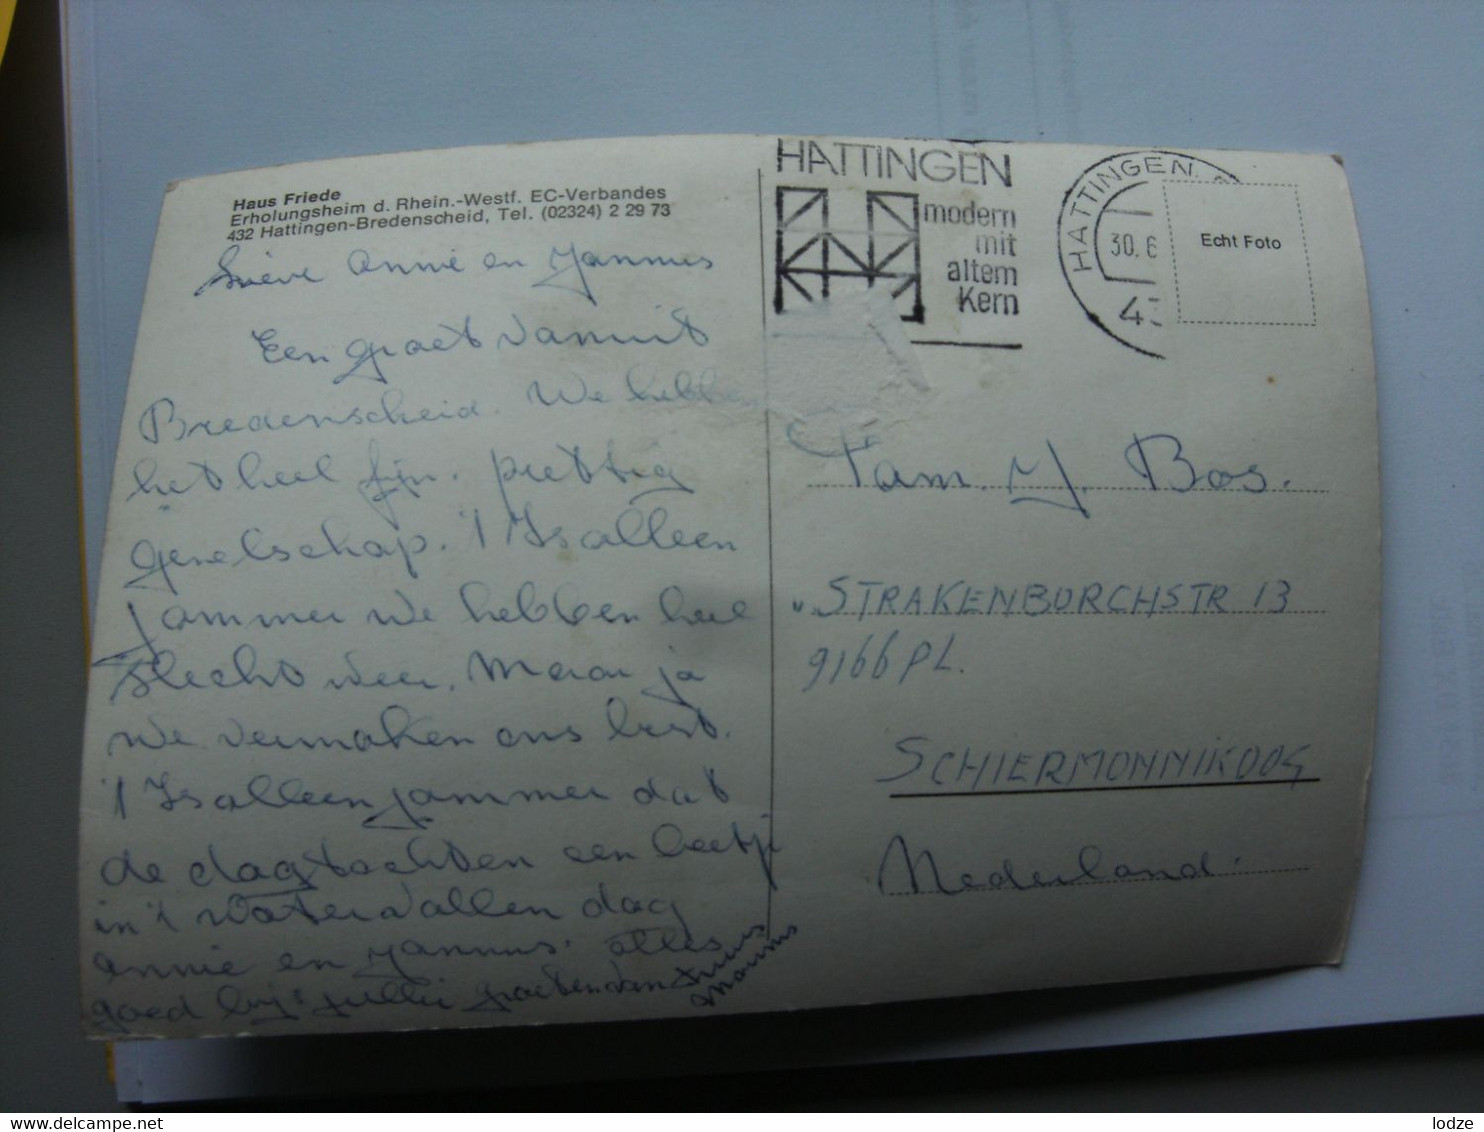 Haus Friede
Erholungsheim d. Rhein.-Westf. EC-Verbandes
432 Hattingen-Bredenscheid, Tel. (02324) 2 29 73
Lieve Annie en Jannus
Een groet vanuit
Bredenscheid. We hebben
het heel fijn. prettig
gezelschap. 't Is alleen
jammer we hebben heel
slecht weer. Maar ja
we vermaken ons best.
't Is alleen jammer dat
de dagtochten een beetje
in 't water vallen dag
Annie en Jannus. alles
goed bij jullie groeten van
HATTINGEN
modern
mit
altem
Kern
HATTINGEN
30.6
43
Echt Foto
Fam. J. Bos.
STRAKENBORCHSTR 13
9166 PL.
SCHIERMONNIKOOG
Nederland.
delcampe.net
lodze